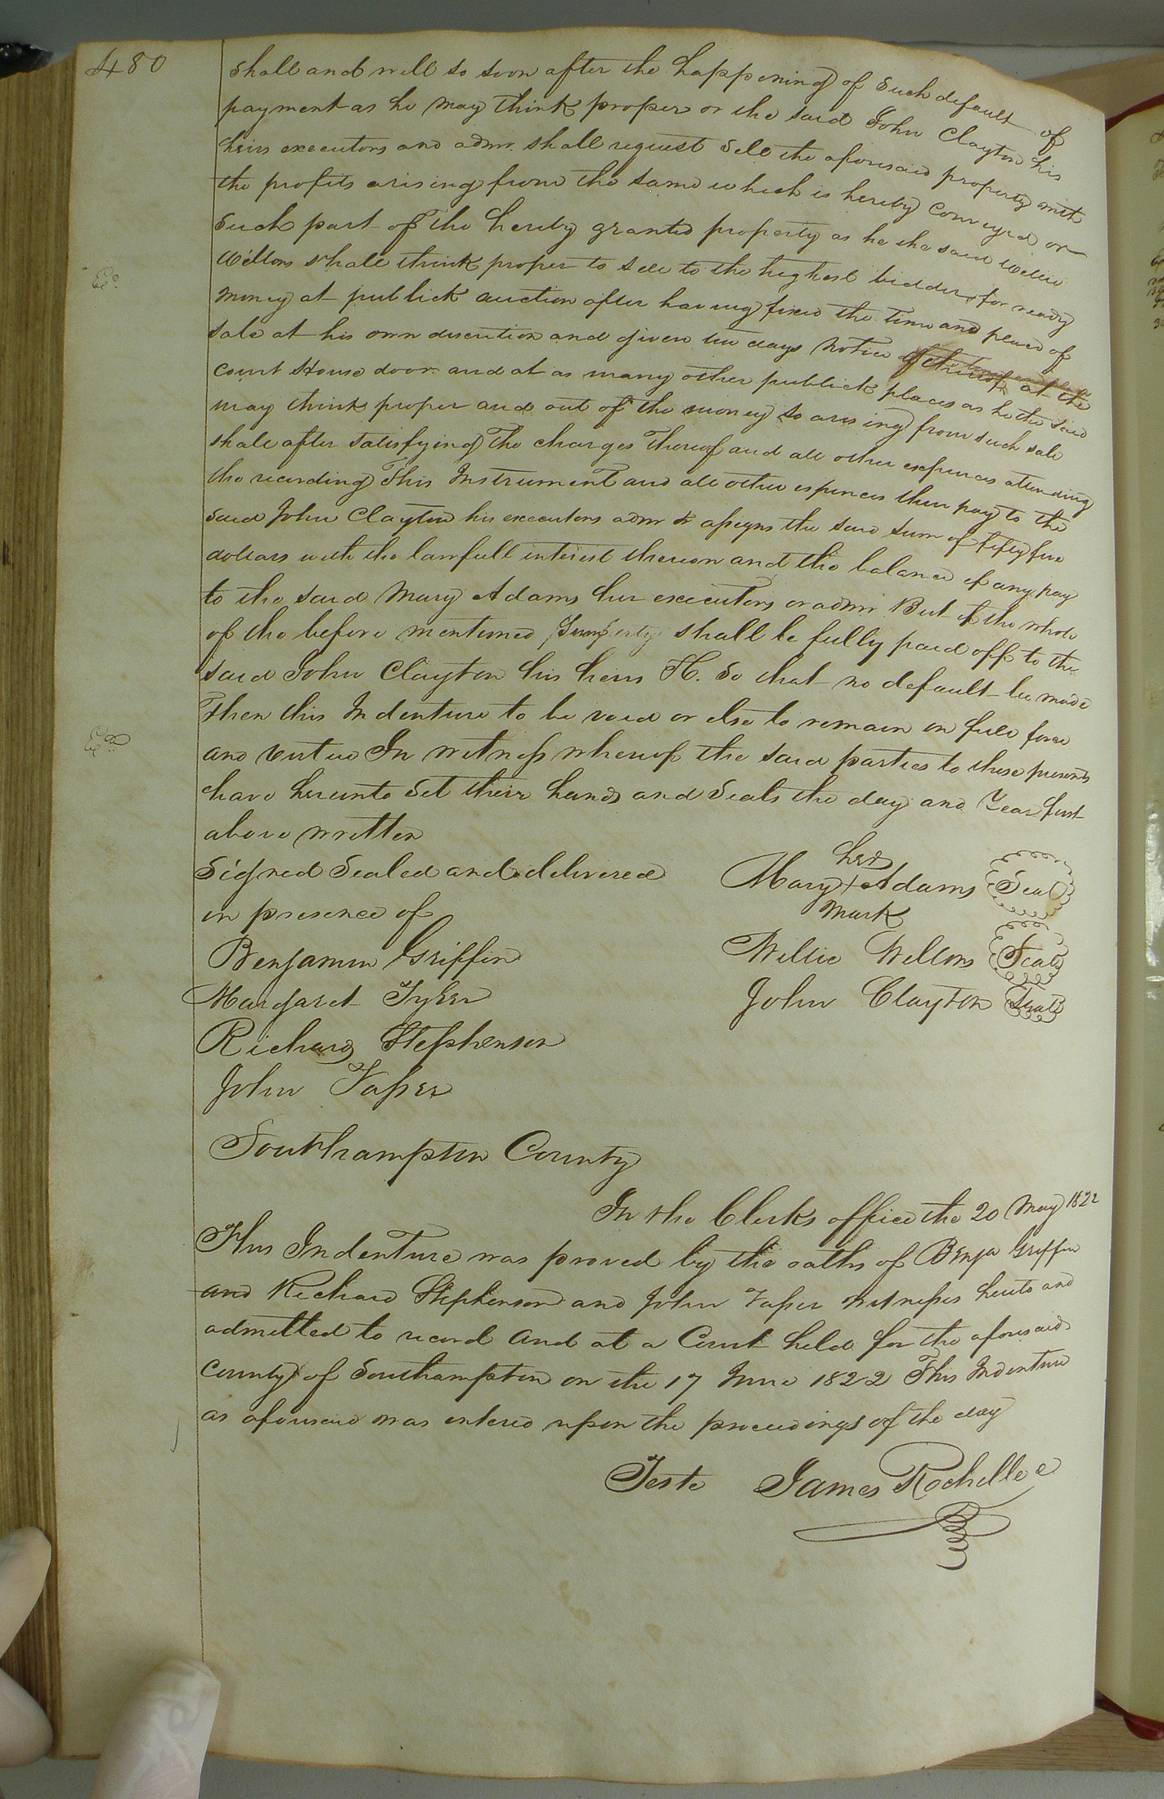 480
shall and will so soon after the happening of such default of
payment as he may think proper or the said John Clayton his
heirs executors and admr. shall request sell the aforesaid property with
the profits arising from the same which is hereby conveyed or
such part of the hereby granted property as he the said Willie
Wellons shall think proper to sell to the highest bidder for ready
money at publick auction after having fixed the time and place of
sale at his own discretion and given ten days notice thereof at the
court House door and at as many other publick places as he the said
may think proper and out of the money so arising from such sale
shall after satisfying the charges thereof and all other expences attending
the recording This Instrument and all other expences then pay to the
said John Clayton his executors admr & assigns the said sum of fifty five
dollars with the lawfull interest thereon and the balance if any pay
to the said Mary Adams her executors or admr But if the whole
of the before mentioned property shall be fully paid off to the
said John Clayton his heirs &c. So that no default be made
Then this Indenture to be void or else to remain in full force
and virtue In witness whereof the said parties to these presents
have hereunto set their hands and seals the day and Year first
above written
Signed Sealed and delivered
in presence of
her
Mary + Adams Seal
mark
Benjamin Griffin
Willie Wellons Seal
Margaret Tyler
John Clayton Seal
Richard Stephenson
John Vasser
Southampton County
In the Clerks office the 20 May 1822
This Indenture was proved by the oaths of Benja Griffin
and Richard Stephenson and John Vasser witnesses hereto and
admitted to record And at a Court held for the aforesaid
County of Southampton on the 17 June 1822 This Indenture
as aforesaid was entered upon the proceedings of the day
Teste James Rochelle c